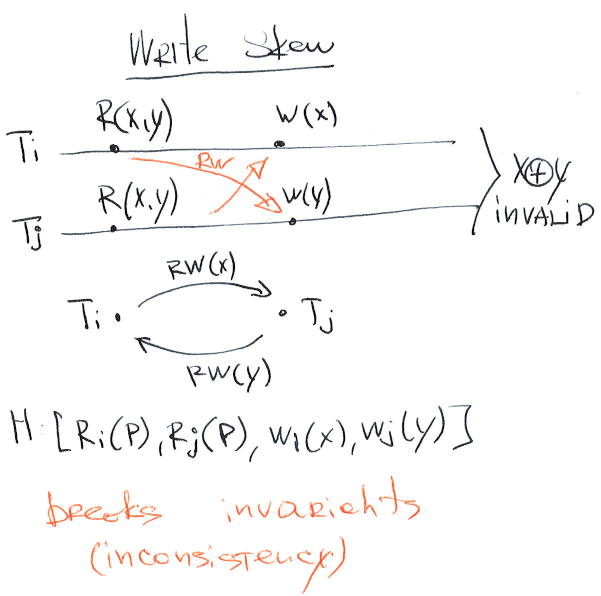 Write Skew
R(x,y) W(x)
Ti
RW
R(x,y) W(y)
Tj
x⊕y
INVALID
RW(x)
Ti Tj
RW(y)
H: [Ri(P), Rj(P), Wi(x), Wj(y)]
breaks invariants
(inconsistency)